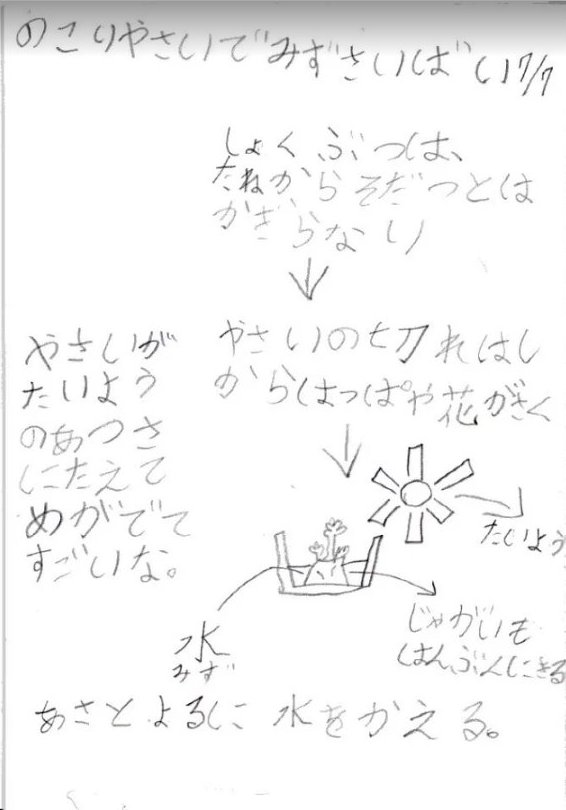 のこりやさいでみずさいばい7/7
しょくぶつは、
たねからそだつとは
かぎらない
↓
やさいの切れはし
からはっぱや花がさく
↓
やさいが
たいよう
のあつさ
にたえて
めがでて
すごいな。
たいよう
じゃがいも
はんぶんにきる
水
みず
あさとよるに水をかえる。